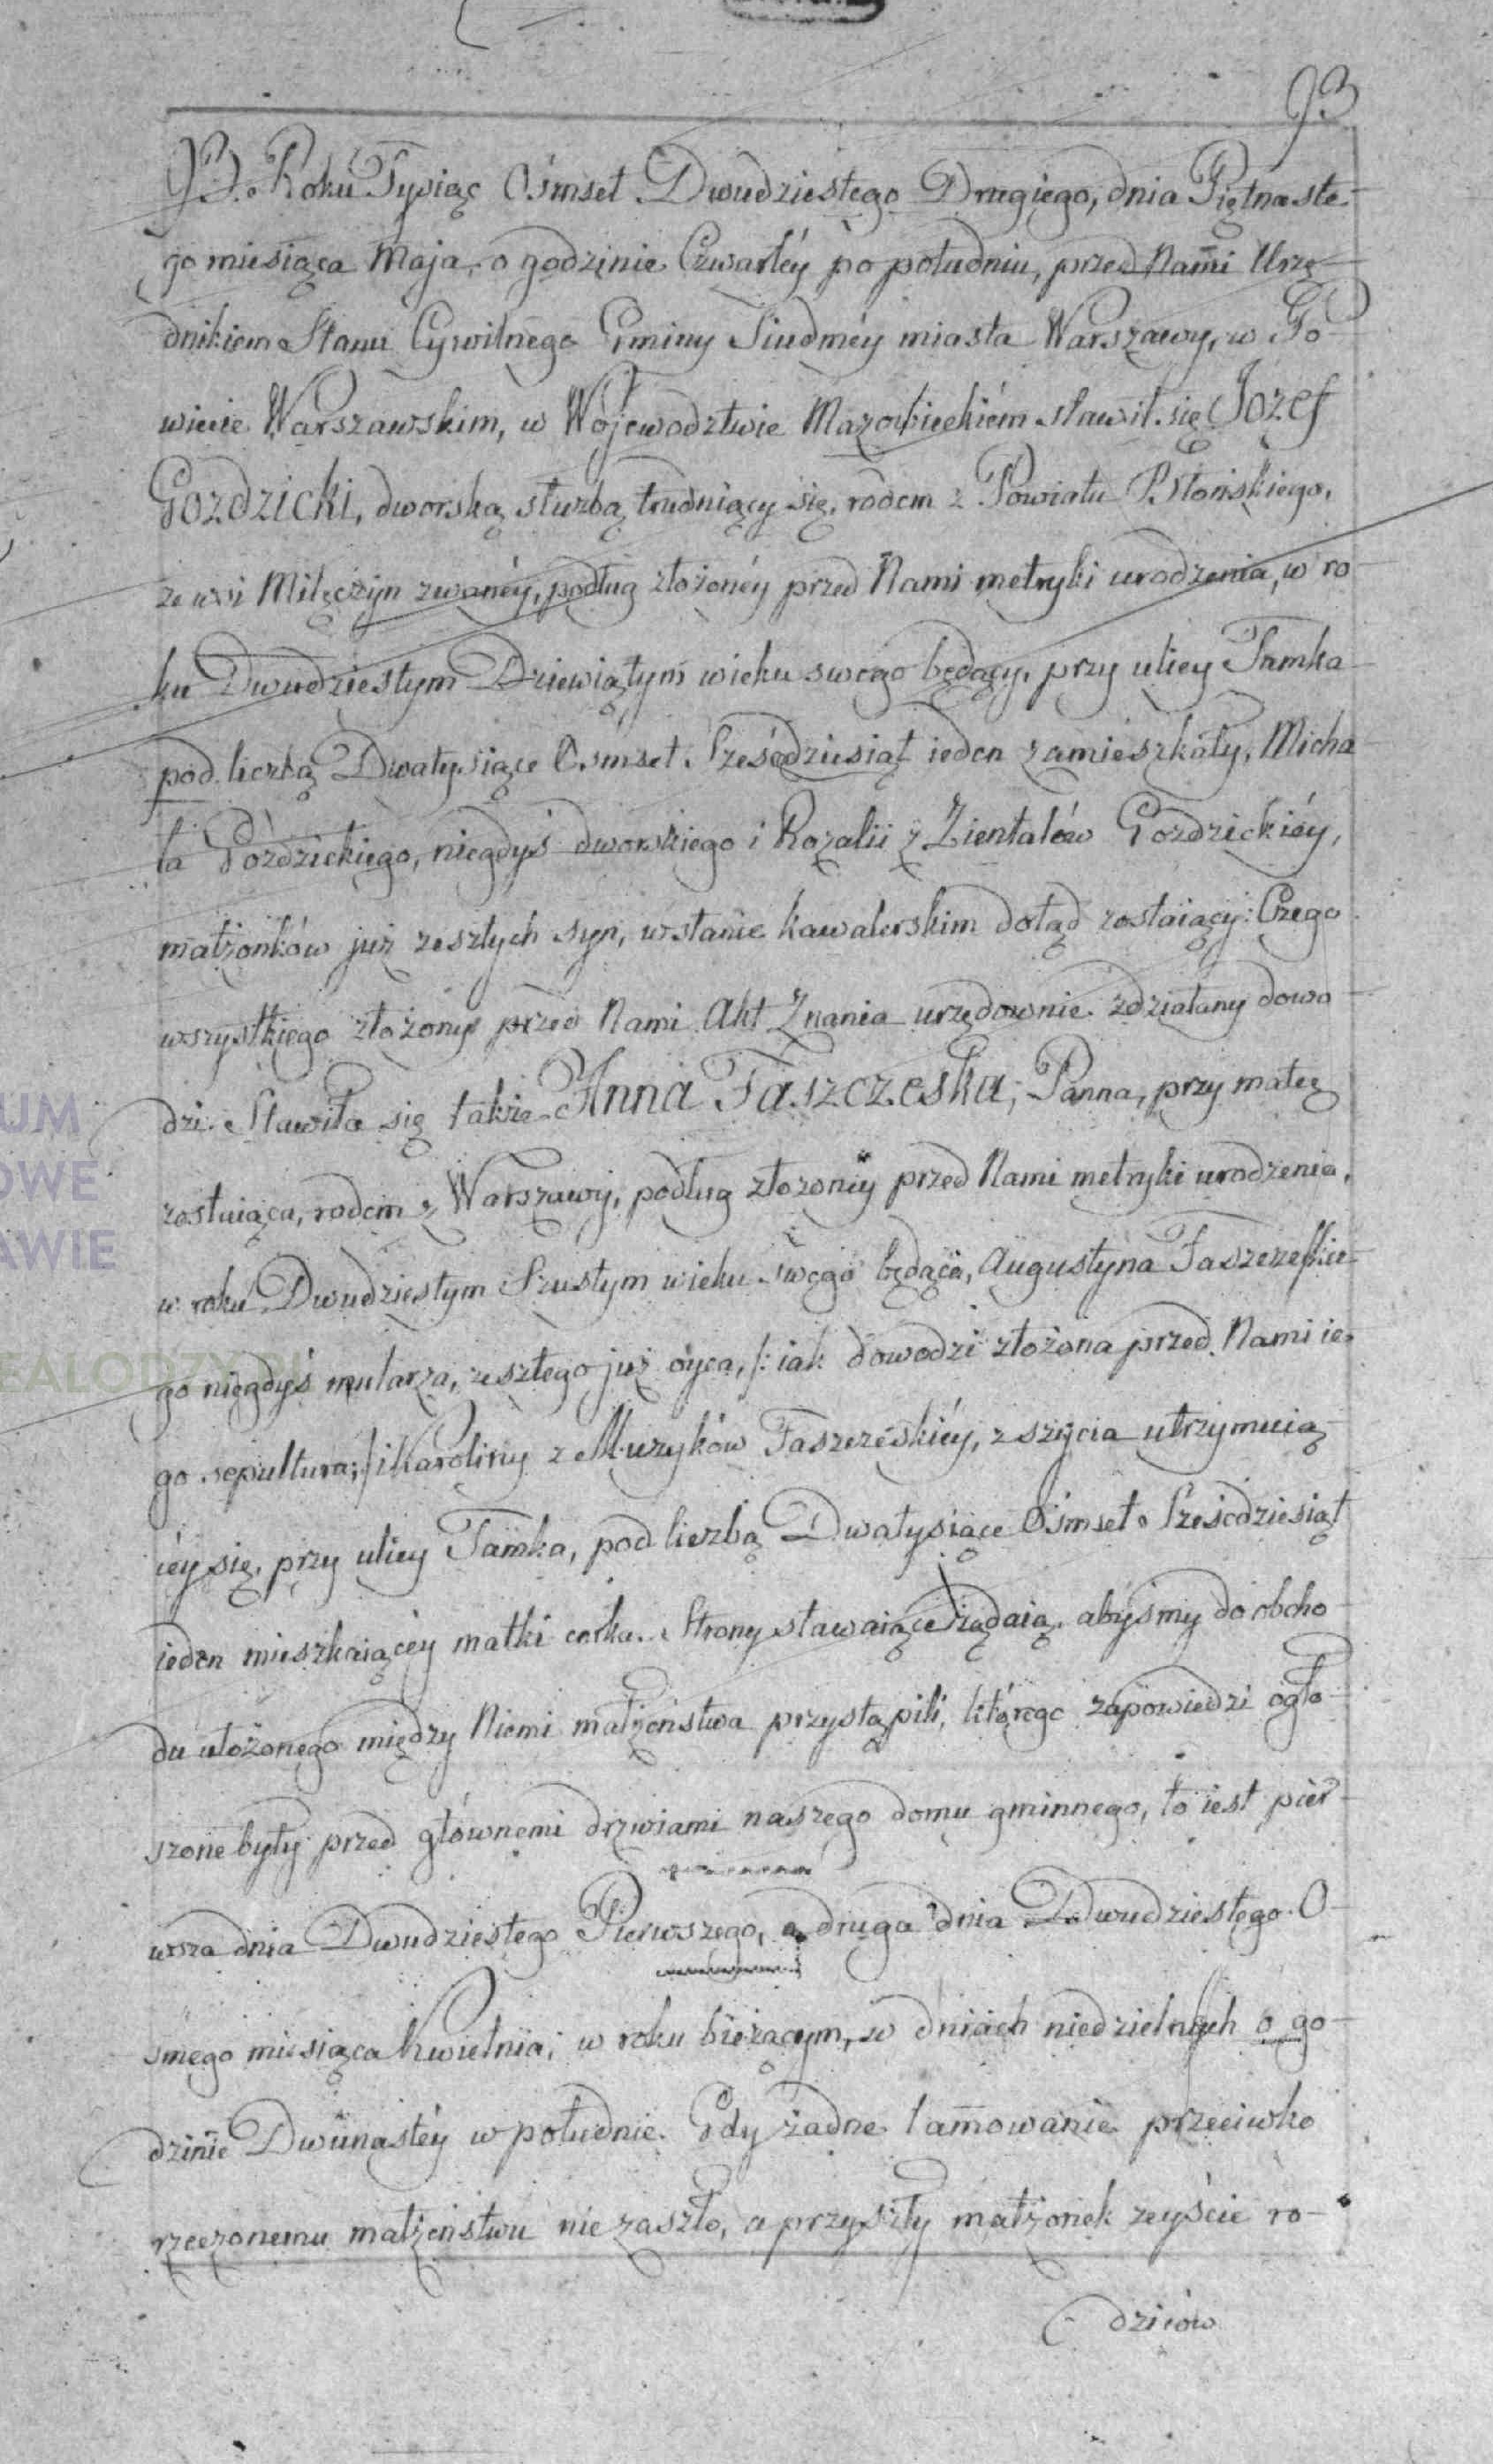 93
93. Roku Tysiąc Ośmset Dwudziestego Drugiego, dnia Piętnaste-
go miesiąca Maja, o godzinie Czwartéy po południu, przed Nami Urzę-
dnikiem Stanu Cywilnego Gminy Siudméy miasta Warszawy, w Po-
wiecie Warszawskim, w Wojewodztwie Mazowieckiém stawił się Jozef
Gozdzicki, dworską służbą trudniący się, rodem z Powiatu Błońskiego,
ze wsi Milęczyn zwanéy, podług złożonéy przed Nami metryki urodzenia, w ro-
ku Dwudziestym Dziewiątym wieku swego będący, przy ulicy Tamka
pod liczbą Dwatysiące Osmset Sześćdziesiąt ieden zamieszkały, Micha-
ła Góździckiego, niegdyś dworskiego i Rozalii z Zientalów Gozdzickiéy,
małżonków już zeszłych syn, w stanie kawalerskim dotąd zostaiący: Czego
wszystkiego złożony przed Nami Akt Znania urzędownie zdziałany dowo-
dzi. Stawiła się także Anna Taszczeska, Panna, przy matce
zostaiąca, rodem z Warszawy, podług złożonéy przed Nami metryki urodzenia,
w roku Dwudziestym Szustym wieku swego będąca, Augustyna Taszczeskie-
go niegdyś mularza, zeszłego już oyca, /: iak dowodzi złożona przed Nami ie-
go sepultura; /i Karoliny z Muzyków Taszczeskiéy, z szycia utrzymuią-
céy się, przy ulicy Tamka, pod liczbą Dwatysiące Ośmset Sześcdziesiąt
ieden mieszkaiącéy matki corka. Strony stawaiące żądaią, abyśmy do obcho-
du ułożonego między Niemi małżeństwa przystąpili, którego zapowiedzi ogło-
szone były przed głównemi drzwiami naszego domu gminnego, to iest pier-
wsza dnia Dwudziestego Pierwszego, a druga dnia Dwudziestego O-
smego miesiąca Kwietnia, w roku bieżącym, w dniach niedzielnych o go-
dzinie Dwunastéy w południe. Gdy żadne tamowanie przeciwko
rzeczonemu małżeństwu nie zaszło, a przyszły małżonek zeyście ro-
dziców
UM
OWE
AWIE
EALODZY.PL